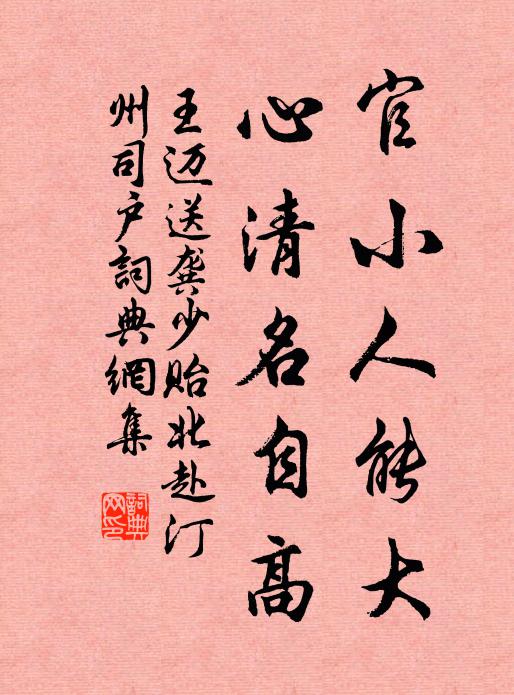 官小人能大
心清名自高
王迈送龚少贻北赴汀
州司户詞典網集
詞典
网印